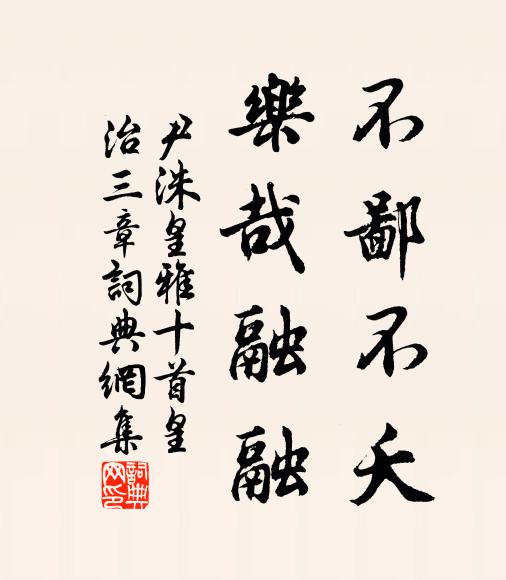 不鄙不夭
樂哉融融
尹洙皇雅十首皇
治三章詞典網集
詞典網印